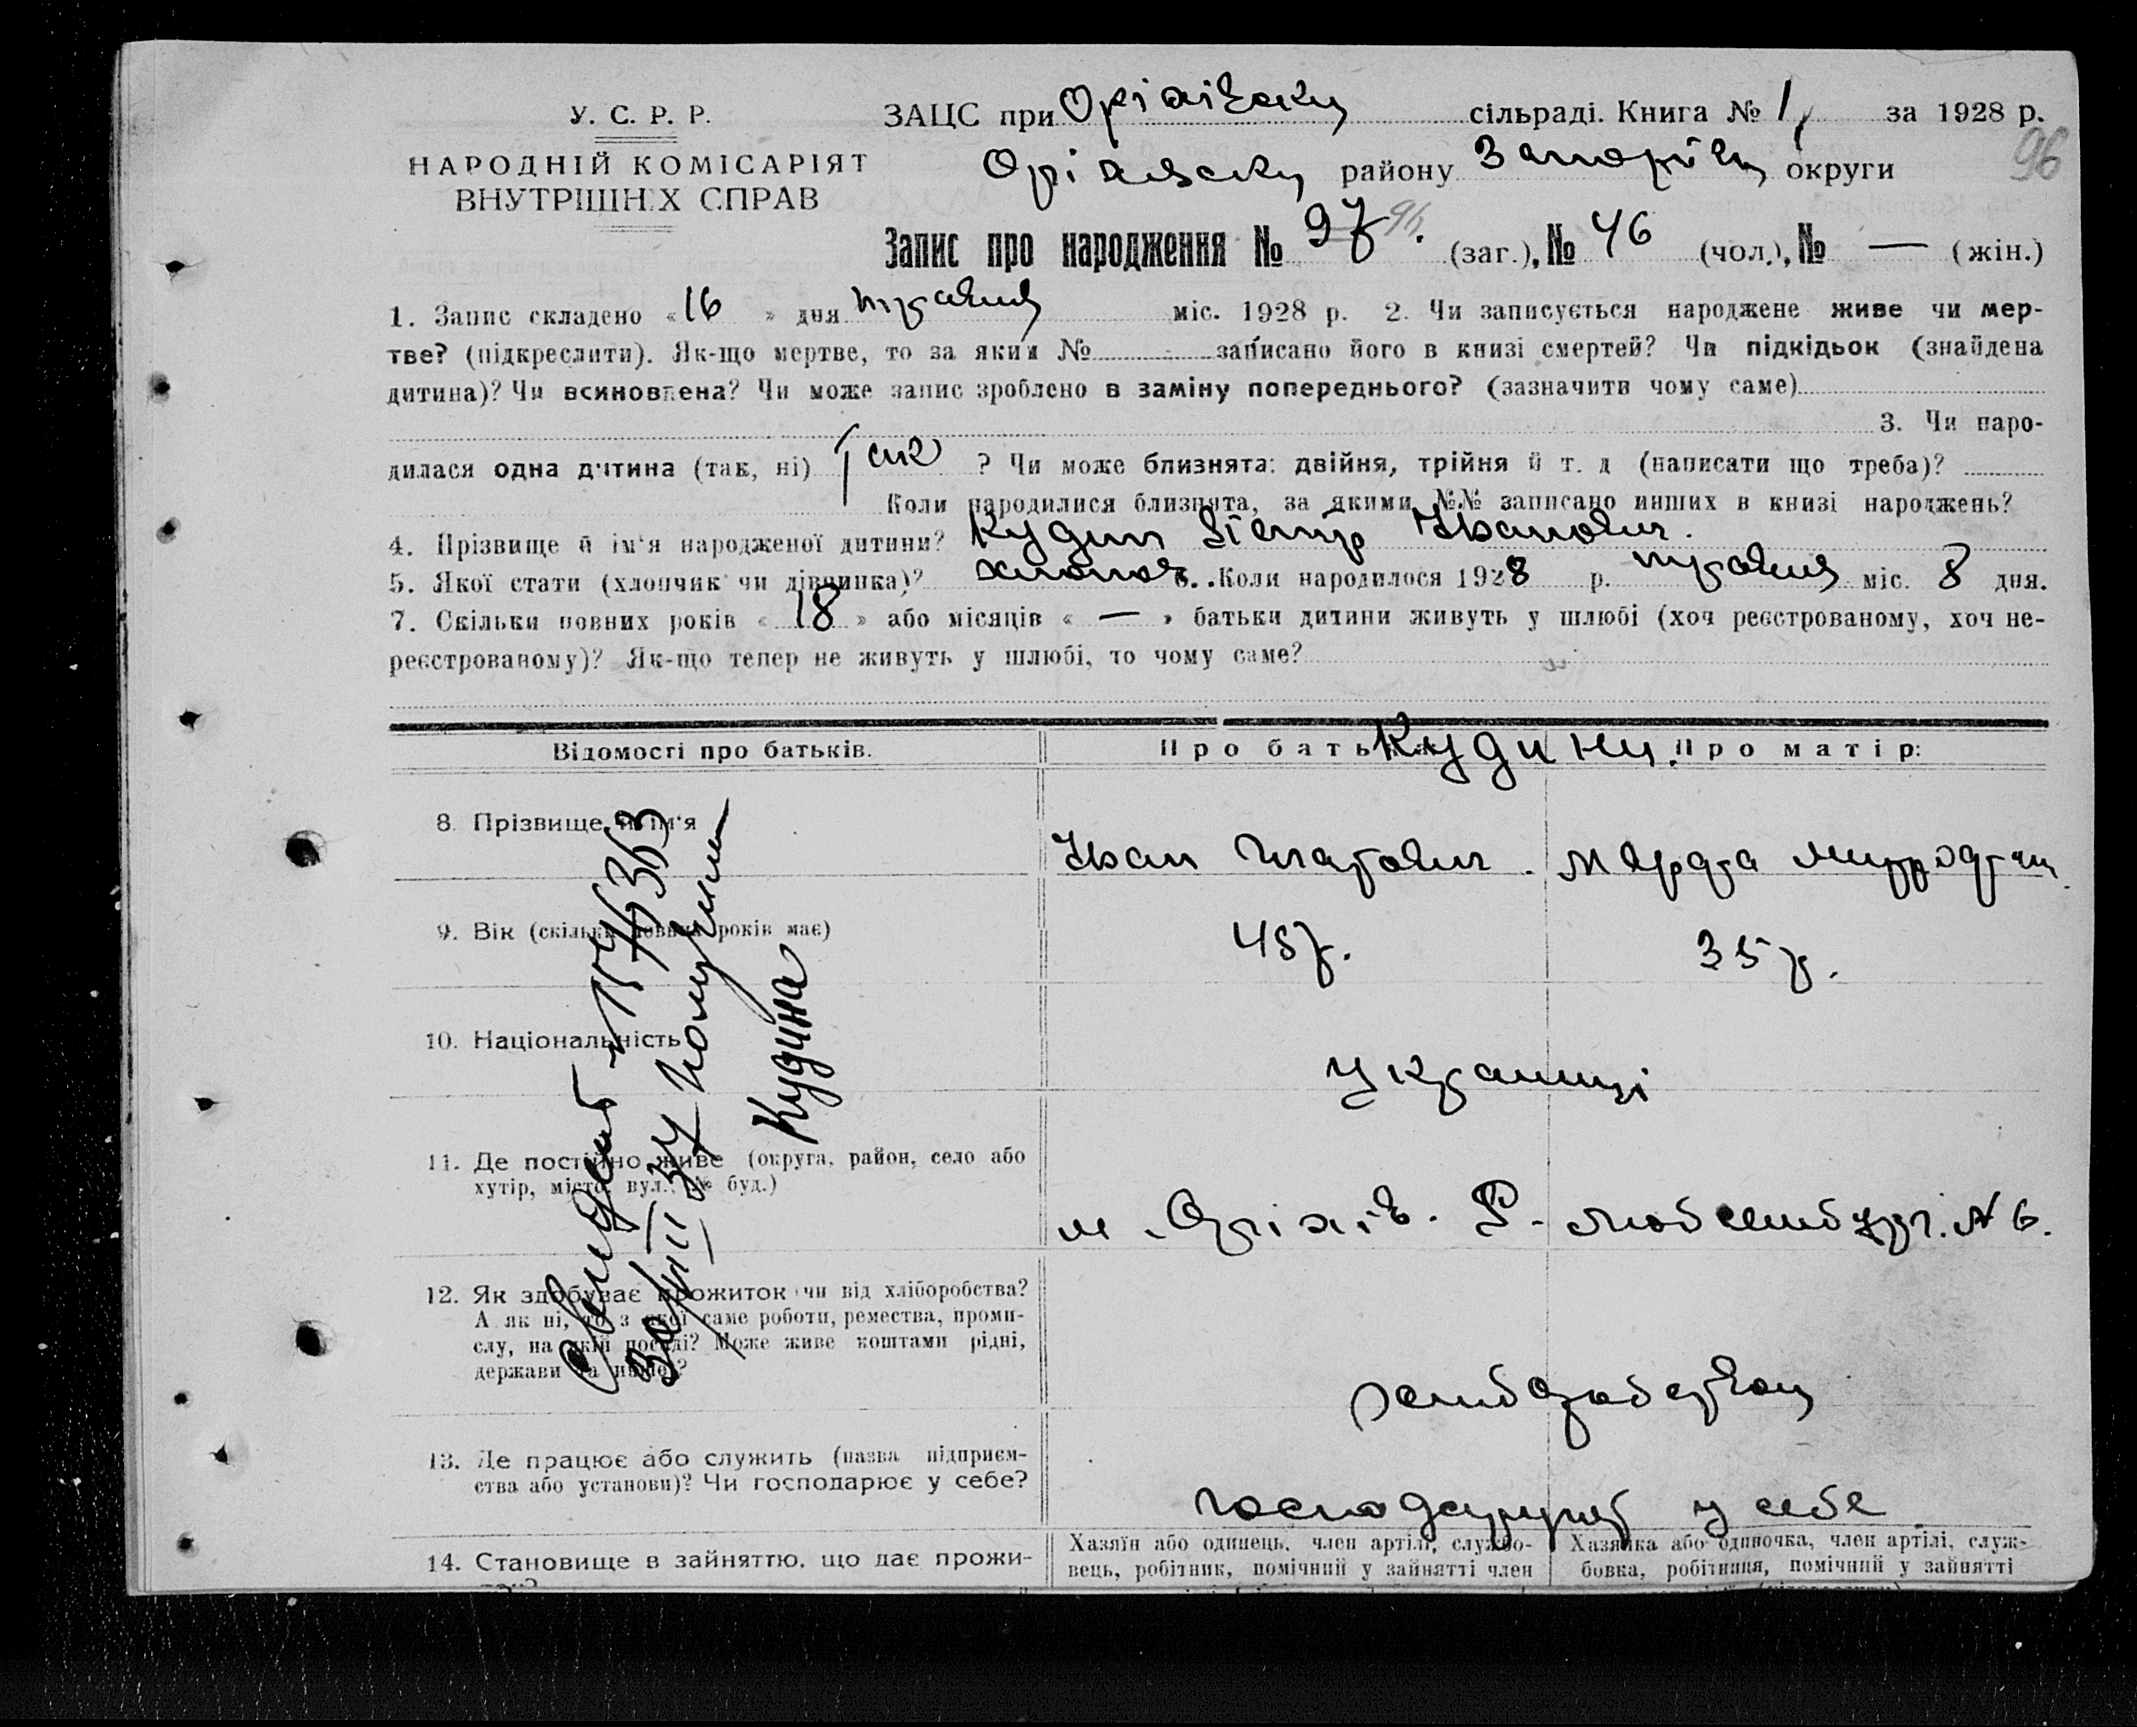 У. С. Р. Р.
НАРОДНІЙ КОМІСАРІЯТ
ВНУТРІШНІХ СПРАВ
ЗАЦС при Оріхівську сільраді. Книга № 1, за 1928 р.
96
Оріхівську району Запоріж округи
Запис про народження № 97 96. (заг.), № 46 (чол.), № — (жін.)
1. Запис складено «16» дня травня міс. 1928 р. 2. Чи записується народжене живе чи мер-
тве? (підкреслити). Як-що мертве, то за яким № записано його в книзі смертей? Чи підкідьок (знайдена
дитина)? Чи всиновлена? Чи може запис зроблено в заміну попереднього? (зазначити чому саме)
3. Чи наро-
дилася одна дитина (так, ні) Так ? Чи може близнята: двійня, трійня й т. д (написати що треба)?
Коли народилися близнята, за якими №№ записано инших в книзі народжень?
4. Прізвище й ім'я народженої дитини? Кудин Петр Іванович.
5. Якої стати (хлопчик чи дівчинка)? хлопоч 6. Коли народилося 1928 р. травня міс. 8 дня.
7. Скільки повних років «18» або місяців «—» батьки дитини живуть у шлюбі (хоч реєстрованому, хоч не-
реєстрованому)? Як-що тепер не живуть у шлюбі, то чому саме?
Відомості про батьків. Про батька: Кудини. Про матір:
8. Прізвище й ім'я Іван Игатович. Марфа Митрофан
9. Вік (скільки повних років має) 45р. 35р.
10. Національність Украинці
11. Де постійно живе (округа, район, село або
хутір, місто, вул., № буд.)
м. Оріхів. Р. Люксенбург. № 6.
12. Як здобуває прожиток чи від хліборобства?
А як ні, то з якої саме роботи, ремества, проми-
слу, на якій посаді? Може живе коштами рідні,
держави та инше?
хлиборобством
13. Де працює або служить (назва підприєм-
ства або установи)? Чи господарює у себе?
господарует у себе
14. Становище в зайняттю, що дає прожи-
Хазяїн або одинець, член артілі, службо-
вець, робітник, помічний у зайнятті член
Хазяйка або одиночка, член артілі, служ-
бовка, робітниця, помічний у зайнятті
Кудина